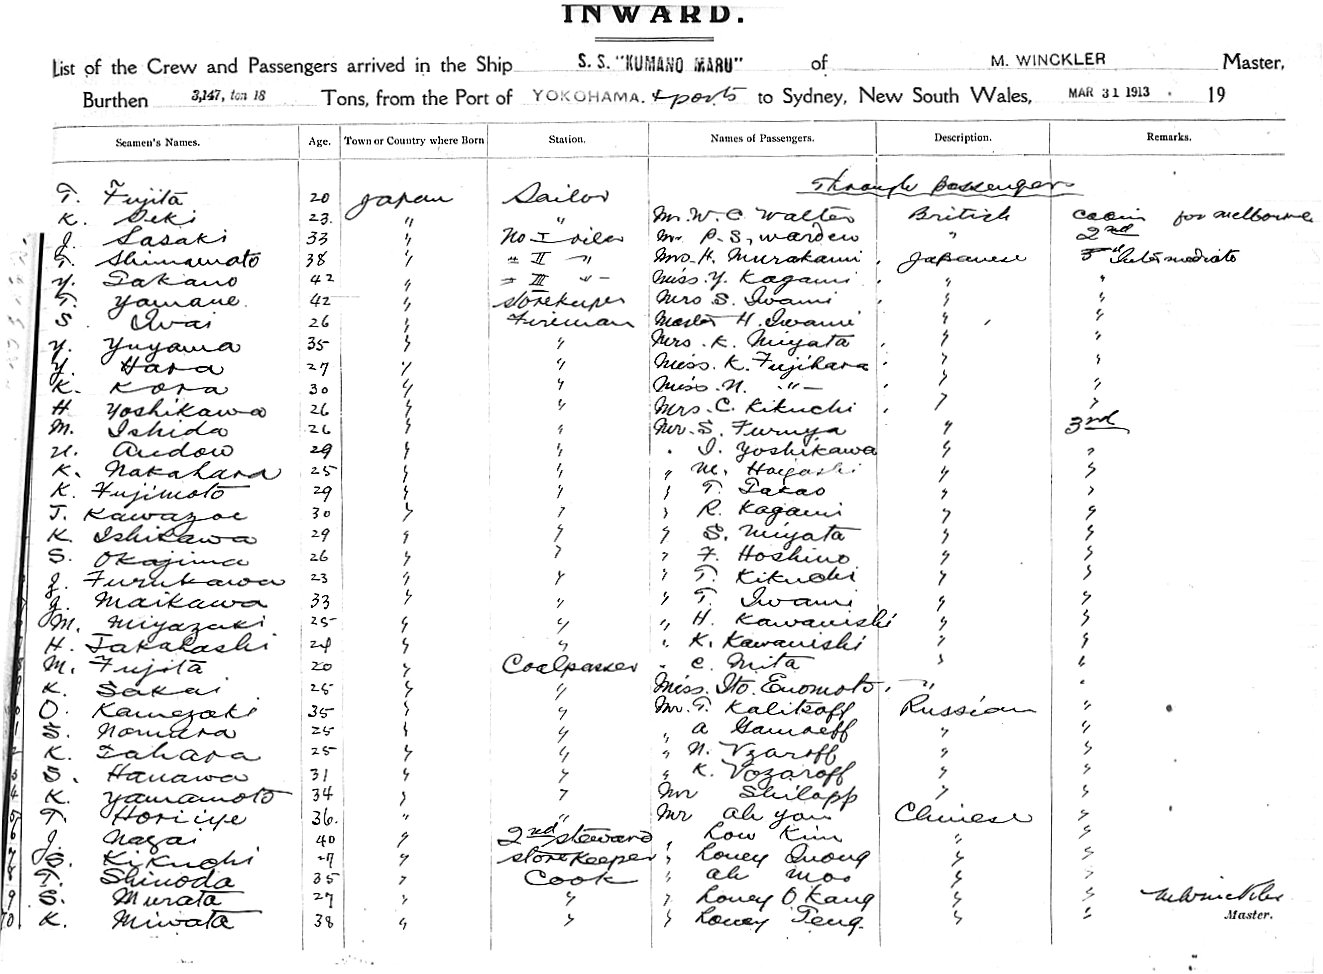 INWARD.
List of the Crew and Passengers arrived in the Ship S. S. "KUMANO MARU" of M. WINCKLER Master,
Burthen 3,147, ton 18 Tons, from the Port of YOKOHAMA. & ports to Sydney, New South Wales, MAR 31 1913 . 19
Seamen's Names. Age. Town or Country where Born Station. Names of Passengers. Description. Remarks.
Through Passengers
T. Fujita 20 Japan Sailor
K. Seki 23. " " Mr. W. C. Walter British Cabin for Melbourne
J. Sasaki 33 " No I oiler Mr. P. S. Warden " 2nd
T. Shimamoto 38 " " II " Mrs. H. Murakami Japanese Intermediate
Y. Takano 42 " " III " Miss. Y. Kagami " "
T. Yamane. 42 " Storekeeper Mrs S. Iwami " "
S. Iwai 26 " Fireman Master H. Iwami " "
Y. Yuyama 35 " " Mrs. K. Miyata " "
Y. Hara 27 " " Miss. K. Fujihara " "
K. Kora 30 " " Miss. N. " " "
H. Yoshikawa 26 " " Mrs. C. Kikuchi " "
M. Ishida 26 " " Mr. S. Furuya " 3rd
U. Andow 29 " " " I. Yoshikawa " "
K. Nakahara 25 " " " M. Hayashi " "
K. Fujimoto 29 " " " T. Takao " "
T. Kawazoe 30 " " " R. Kagami " "
K. Ishikawa 29 " " " S. Miyata " "
S. Okajima 26 " " " F. Hoshino " "
J. Furukawa 23 " " " T. Kikuchi " "
J. Maikawa 33 " " " T. Iwami " "
M. Miyazaki 25 " " " H. Kawanishi " "
H. Takahashi 24 " " " K. Kawanishi " "
M. Fujita 20 " Coalpasser " C. Mita " "
K. Sakai 25 " " Miss. Ito. Enomoto " "
O. Kamezaki 35 " " Mr. T. Kalitzoff Russian "
S. Nomura 25 " " " A " "
K. Tahara 25 " " " N. Vzaroff " "
S. Hanawa 31 " " " K. Vozaroff " "
K. Yamamoto 34 " " Mr Shilapp " "
T. Horiiye 36. " " Mr Ah You Chinese "
J. Nagai 40 " 2nd Steward " Low Kim " "
S. Kikuchi 27 " Storekeeper " Louey Quong " "
T. Shinoda 35 " Cook " Ah Moo " "
S. Murata 27 " " " Louey O Kang " " M Winckler
K. Miwata 38 " " " Louey Teng. " " Master.